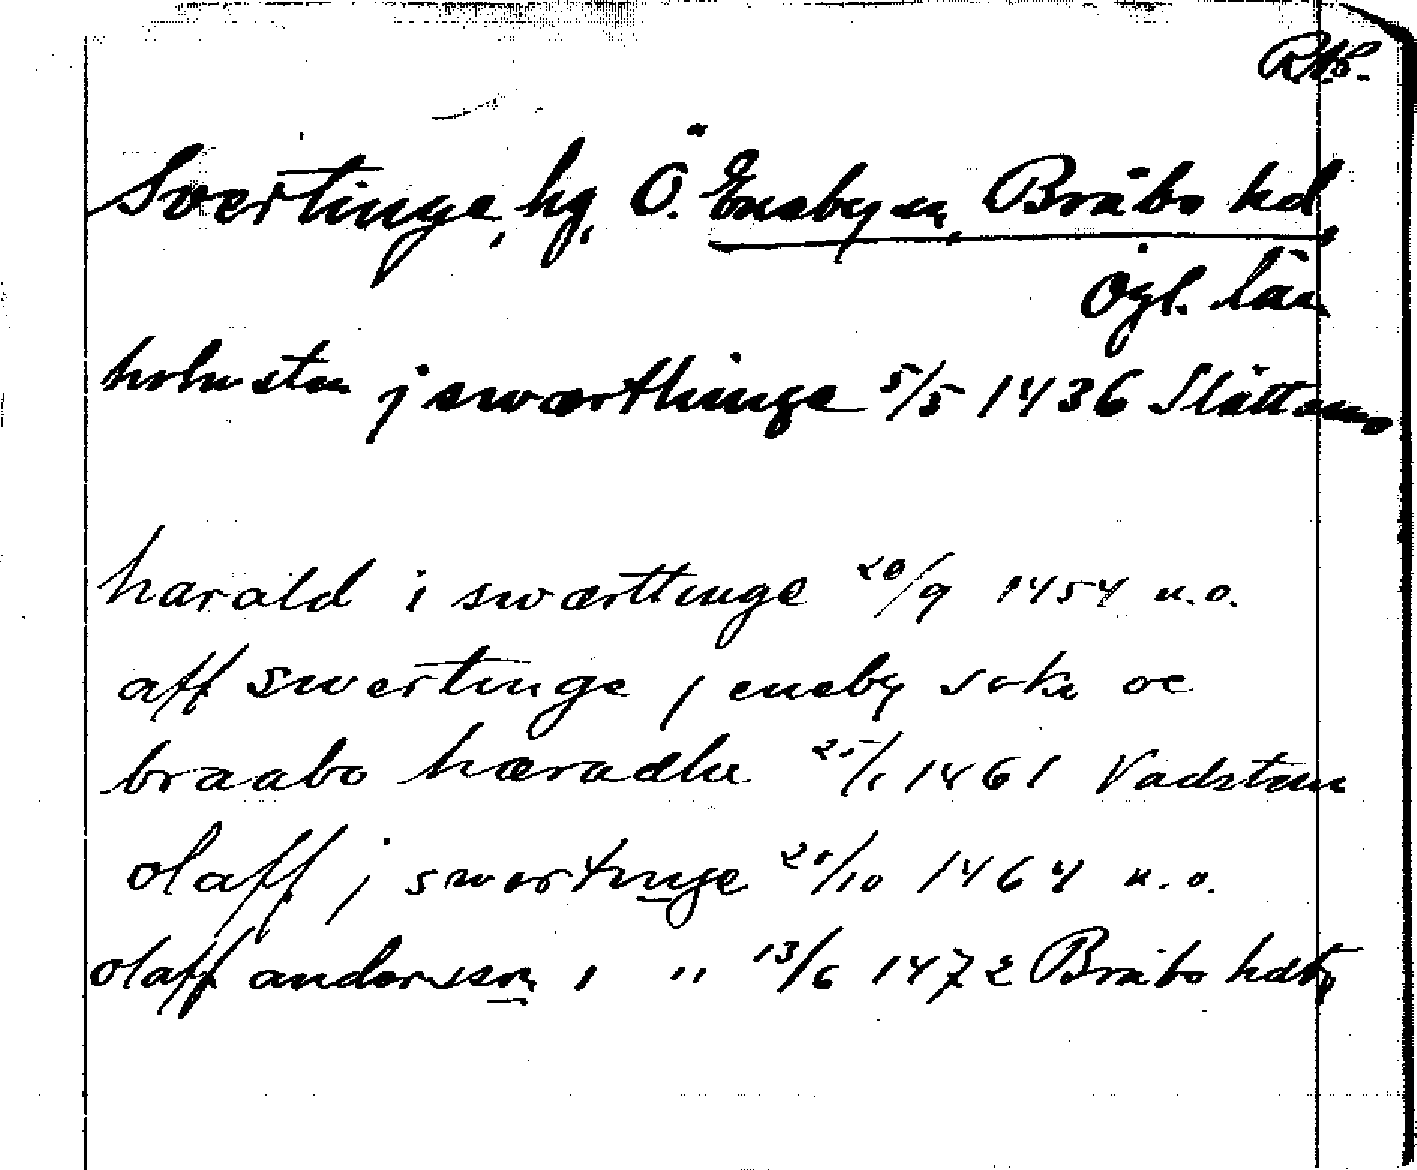 RAP.
Svertinge, hg, Ö. Eneby sn, Bråbo hd,
Ögl. län
holmsten j swærthinge 5/5 1436 Slättemo
harald i swærttinge 20/9 1454 u.o.
aff swertinge j eneby sokn oc
braabo hæradhe 25/1 1461 Vadstena
olaff j swertinge 20/10 1464 u.o.
olaff andersson i " 13/6 1472 Bråbo hdtg